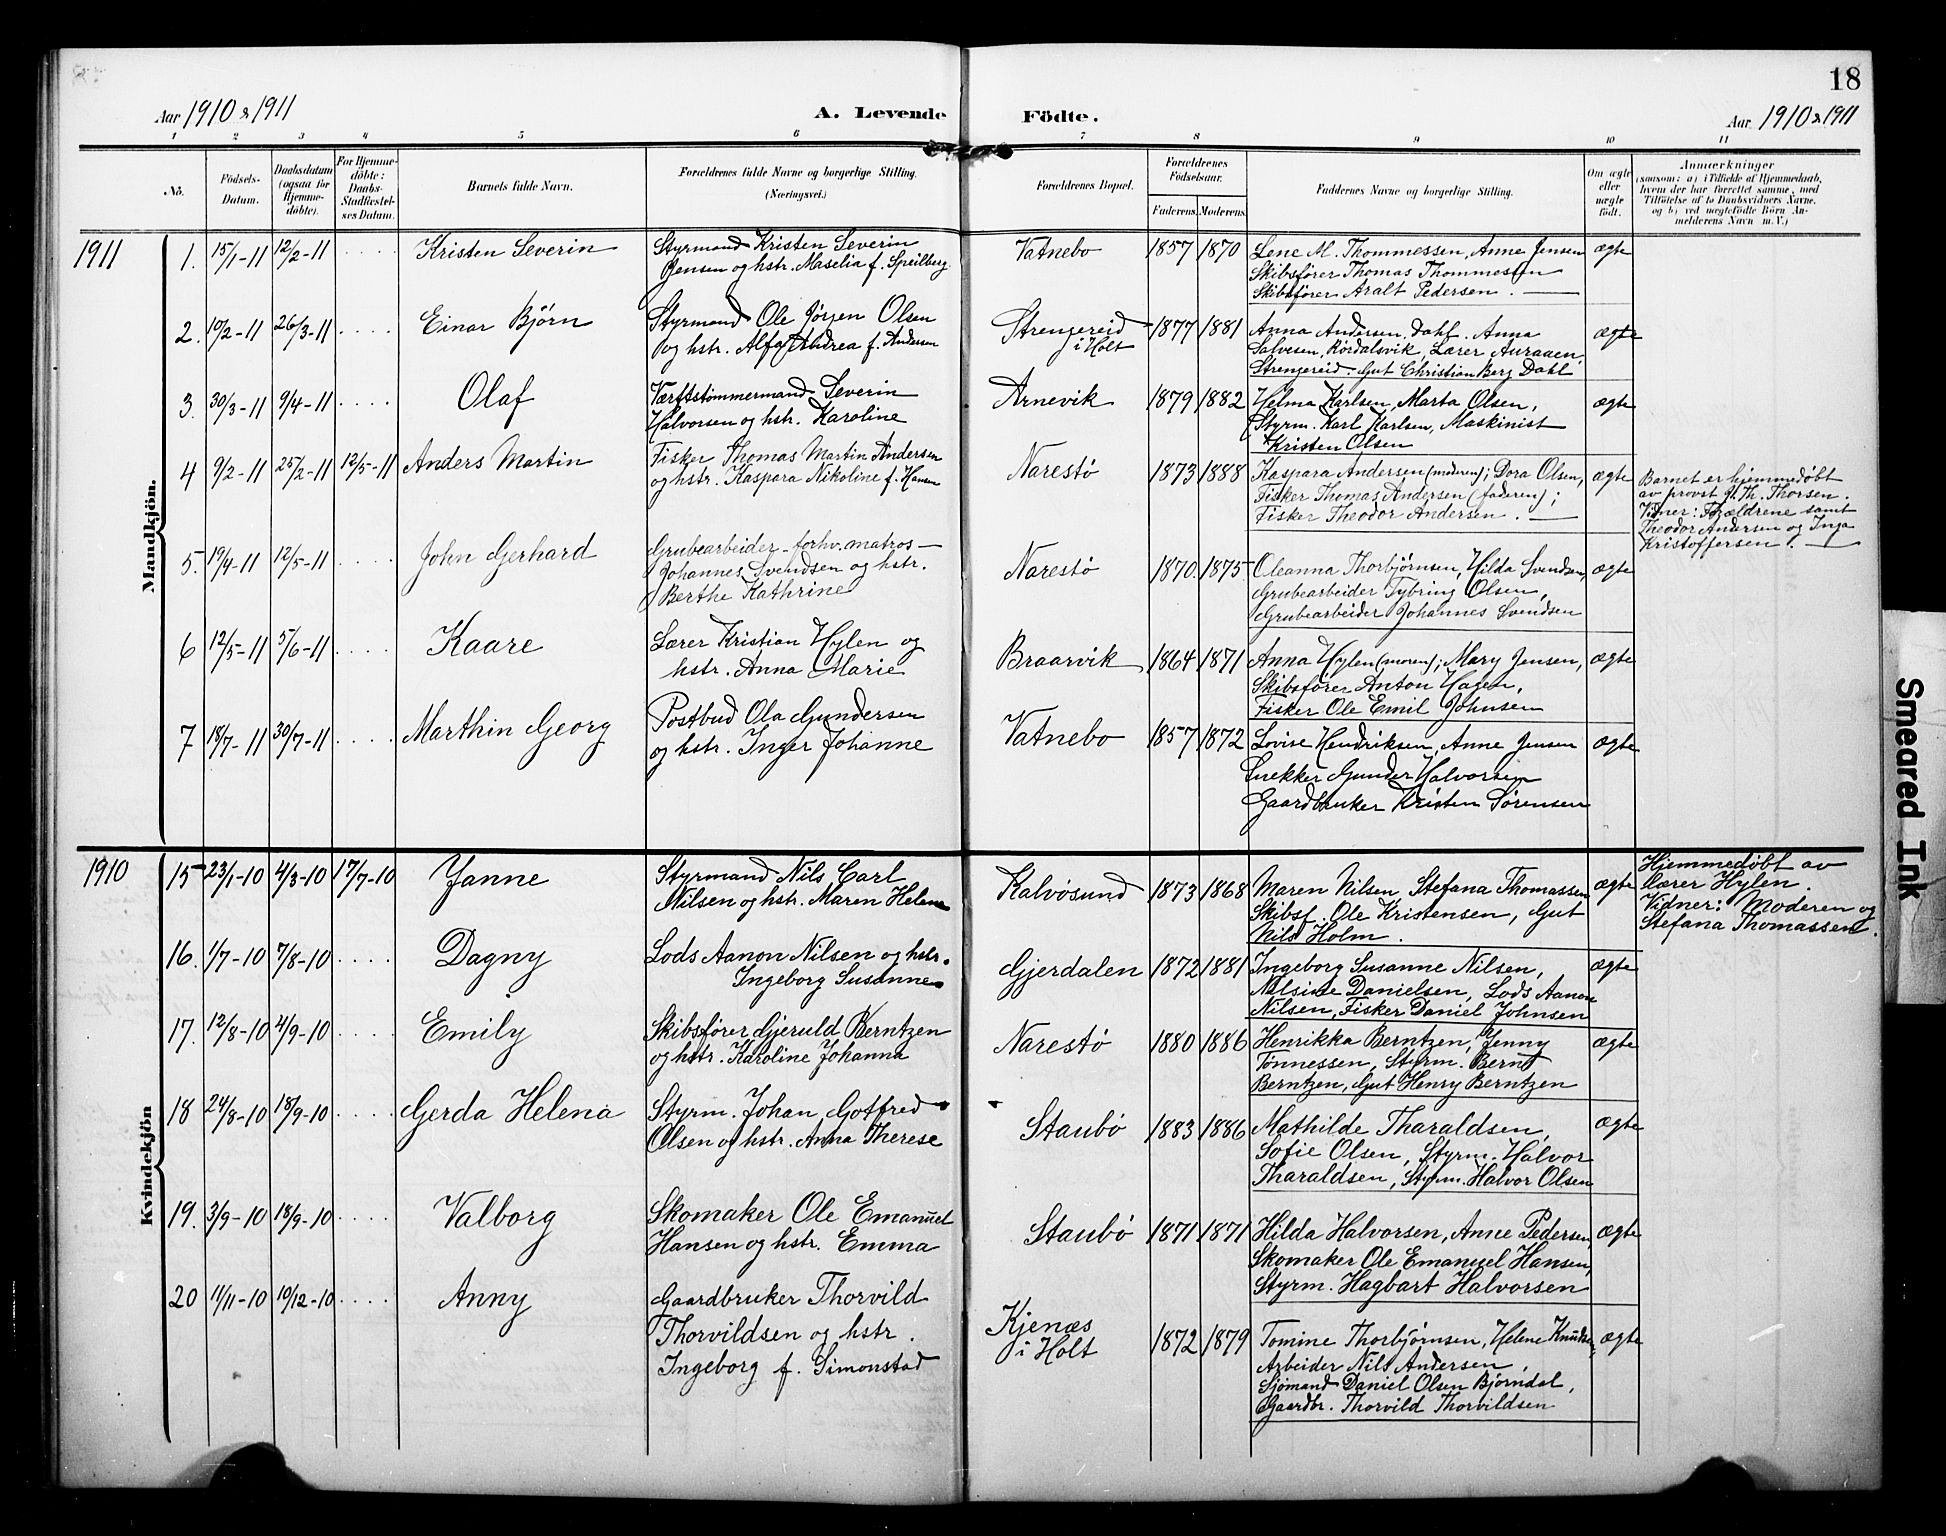 18
Aar 1910 & 1911
A. Levende
Födte.
Aar 1910 & 1911
1 2 3 4 5 6 7 8 9 10 11
No.
Födsels-
Datum.
Daabsdatum
(ogsaa for
Hjemme-
döbte).
For Hjemme-
döbte:
Daabs-
Stadfæstel-
ses Datum.
Barnets fulde Navn.
Forældrenes fulde Navne og borgerlige Stilling.
(Næringsvei.)
Forældrenes Bopæl.
Forældrenes
Födselsaar.
Faderens. Moderens.
Faddernes Navne og borgerlige Stilling.
Om ægte
eller
uægte
født.
Anmærkninger
(saasom: a) i Tilfælde af Hjemmedaab,
hvem der har forrettet samme, med
Tilföielse af to Daabsvidners Navne.
og b) ved uægtefödte Börn An-
melderens Navn m. V.)
1911
Mandkjön.
1. 15/1-11 12/2-11 . . . . Kristen Severin
Styrmand Kristen Severin
Jensen og hstr. Maselia f. Speilberg
Vatnebo 1857 1870
Lene M. Thommessen, Anne Jensen
Skibsfører Thomas Thommesen
Skibsfører Aralt Pedersen.
ægte
2. 10/2-11 26/3-11 . . . . Einar Bjørn
Styrmand Ole Jörgen Olsen
og hstr. Alfa Andrea f. Andersen
Strengereid
i Holt
1877 1881
Anna Andersen, Dahl. Anna
Salvesen, Rördalsvik, Lærer Auraaen,
Strengereid. Gut Christian Berg Dahl
ægte
3. 30/3-11 9/4-11 . . . . Olaf
Værftstömmermand Severin
Halvorsen og hstr. Karoline
Arnevik 1879 1882
Helma Karlsen, Marta Olsen,
Styrm. Karl Karlsen, Maskinist
Kristen Olsen
ægte
4 9/2-11 25/2-11 12/5-11 Anders Martin
Fisker Thomas Martin Andersen
og hstr. Kaspara Nikoline f. Hansen
Narestö 1873 1888
Kaspara Andersen (moderen); Dora Olsen,
Fisker Thomas Andersen (faderen);
Fisker Theodor Andersen.
ægte
Barnet er hjemmedøbt
av provst H. Th. Thorsen.
Vidner: Forældrene samt
Theodor Andersen og Inga
Kristoffersen.
5. 19/4-11 12/5-11 . . . . John Gerhard
Grubearbeider - forhv. matros -
Johannes Svendsen og hstr.
Berthe Kathrine
Narestö 1870 1875
Oleanna Thorbjørnsen, Hilda Svendsen,
Grubearbeider Tybring Olsen,
Grubearbeider Johannes Svendsen
ægte
6 12/5-11 5/6-11 . . . . Kaare
Lærer Kristian Hylen og
hstr. Anna Marie
Braarvik 1864 1871
Anna Hylen (moren); Mary Jensen,
Skibsfører Anton Hagen,
Fisker Ole Emil Johnsen
ægte
7 18/7-11 30/7-11 . . . . Marthin Georg
Postbud Ola Gundersen
og hstr. Inger Johanne
Vatnebo 1857 1872
Lovise Hendriksen, Anne Jensen
Snekker Gunder Halvorsen
Gaardbruker Kristen Sørensen
ægte
1910
Kvindekjön
15 23/1-10 4/3-10 17/7-10 Janne
Styrmand Nils Carl
Nilsen og hstr. Maren Helene
Kalvøsund 1873 1868
Maren Nilsen, Stefana Thomassen
Skibsf. Ole Kristensen, Gut
Nils Holm.
ægte
Hjemmedøbt av
lærer Hylen.
Vidner: Moderen og
Stefana Thomassen.
16. 1/7-10 7/8-10 . . . . Dagny
Lods Aanon Nilsen og hstr.
Ingeborg Susanne
Gjerdalen 1872 1881
Ingeborg Susanne Nilsen,
Nilsine Danielsen, Lods Aanon
Nilsen, Fisker Daniel Johnsen
ægte
17. 12/8-10 4/9-10 . . . . Emily
Skibsfører Gjeruld Berntzen
og hstr. Karoline Johanna
Narestö 1880 1886
Henrikka Berntzen, Jenny
Tönnessen, Styrm. Bernt
Berntzen, Gut Henry Berntzen
ægte
18 24/8-10 18/9-10 . . . . Gerda Helena
Styrm. Johan Gotfred
Olsen og hstr. Anna Therese
Staubö 1883 1886
Mathilde Tharaldsen,
Sofie Olsen, Styrm. Halvor
Tharaldsen, Styrm. Halvor Olsen
ægte
19. 3/9-10 18/9-10 . . . . Valborg
Skomaker Ole Emanuel
Hansen og hstr. Emma
Staubö 1871 1871
Hilda Halvorsen, Anne Pedersen,
Skomaker Ole Emanuel Hansen,
Styrm. Hagbart Halvorsen
ægte
20 11/11-10 10/12-10 . . . . Anny
Gaardbruker Thorvild
Thorvildsen og hstr.
Ingeborg f. Simonstad
Kjenæs
i Holt
1872 1879
Tomine Thorbjörnsen, Helene Knudsen,
Arbeider Nils Andersen,
Sjömand Daniel Olsen Bjørndal,
Gaardbr. Thorvild Thorvildsen
ægte
Smeared Ink